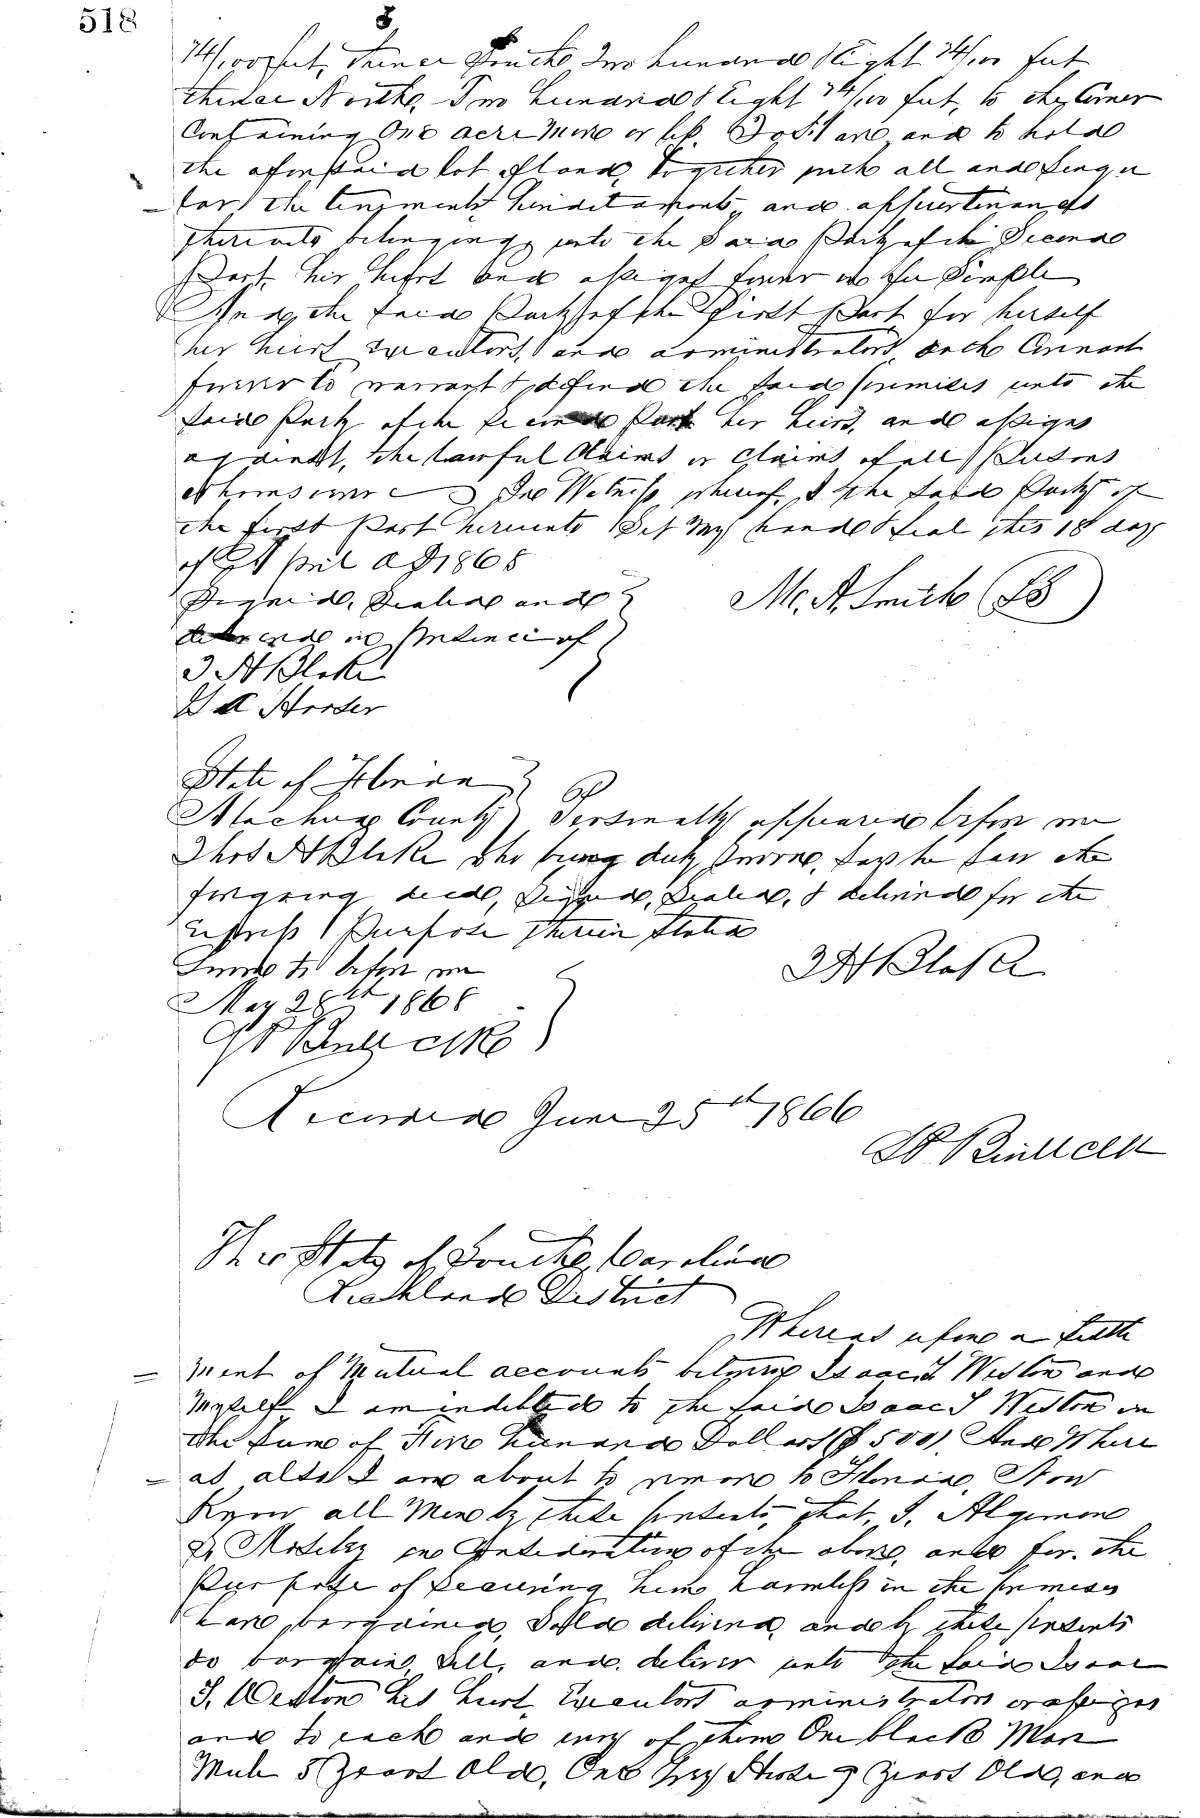 518
74/100 feet, thence South Two hundred & Eight 74/100 feet
thence North, Two hundred & Eight 74/100 feet, to the Corner
Containing One acre More or less. To Have and to hold
the aforesaid lot of land, together with all and Singu
= lar the tenements, heriditaments, and appurtenances
thereunto belonging unto the Said Party of the Second
Part, her heirs and assigns forever in fee Simple
And the said Party of the First Part for herself
her heirs executors, and administrators, doth Covenant
forever to warrant & defend the said premises unto the
said Party of the Second Part her heirs, and assigns
against, the lawful Claims or Claims of all Persons
Whomsoever In Witness whereof, I the said Party of
the first Part hereunto Set My hand & seal this 18 day
of April AD 1868
Signed, Sealed and
delivered in presence of
M. A. Smith LS
T H Blake
State of Florida
Alachua County Personally appeared before me
Thos H Blake who being duly sworn, says he saw the
forgoing deed, Signed, Sealed, & delivered for the
express Purpose therein Stated
Sworn to before me
T H Blake
May 28th 1868
Recorded June 25th 1866
The State of South Carolina
Richland District
Whereas upon a Settle
= ment of Mutual accounts between Isaac T Weston and
Myself I am indebted to the said Isaac T Weston in
the Sum of Five hundred Dollars ($500). And Where
= as also I am about to remove to Florida, Now
Know all Men by these presents, that, I, Algernon
S. Moseley in Consideration of the above, and for the
Purpose of Securing him harmless in the premises
have bargained, Sold delivered, and by these presents
do bargain, Sell, and deliver unto the said Isaac
T. Weston his heirs, Executors administrators or assigns
and to each and every of them One black Mare
Mule 5 Years Old, One Grey Horse 9 Years Old, and